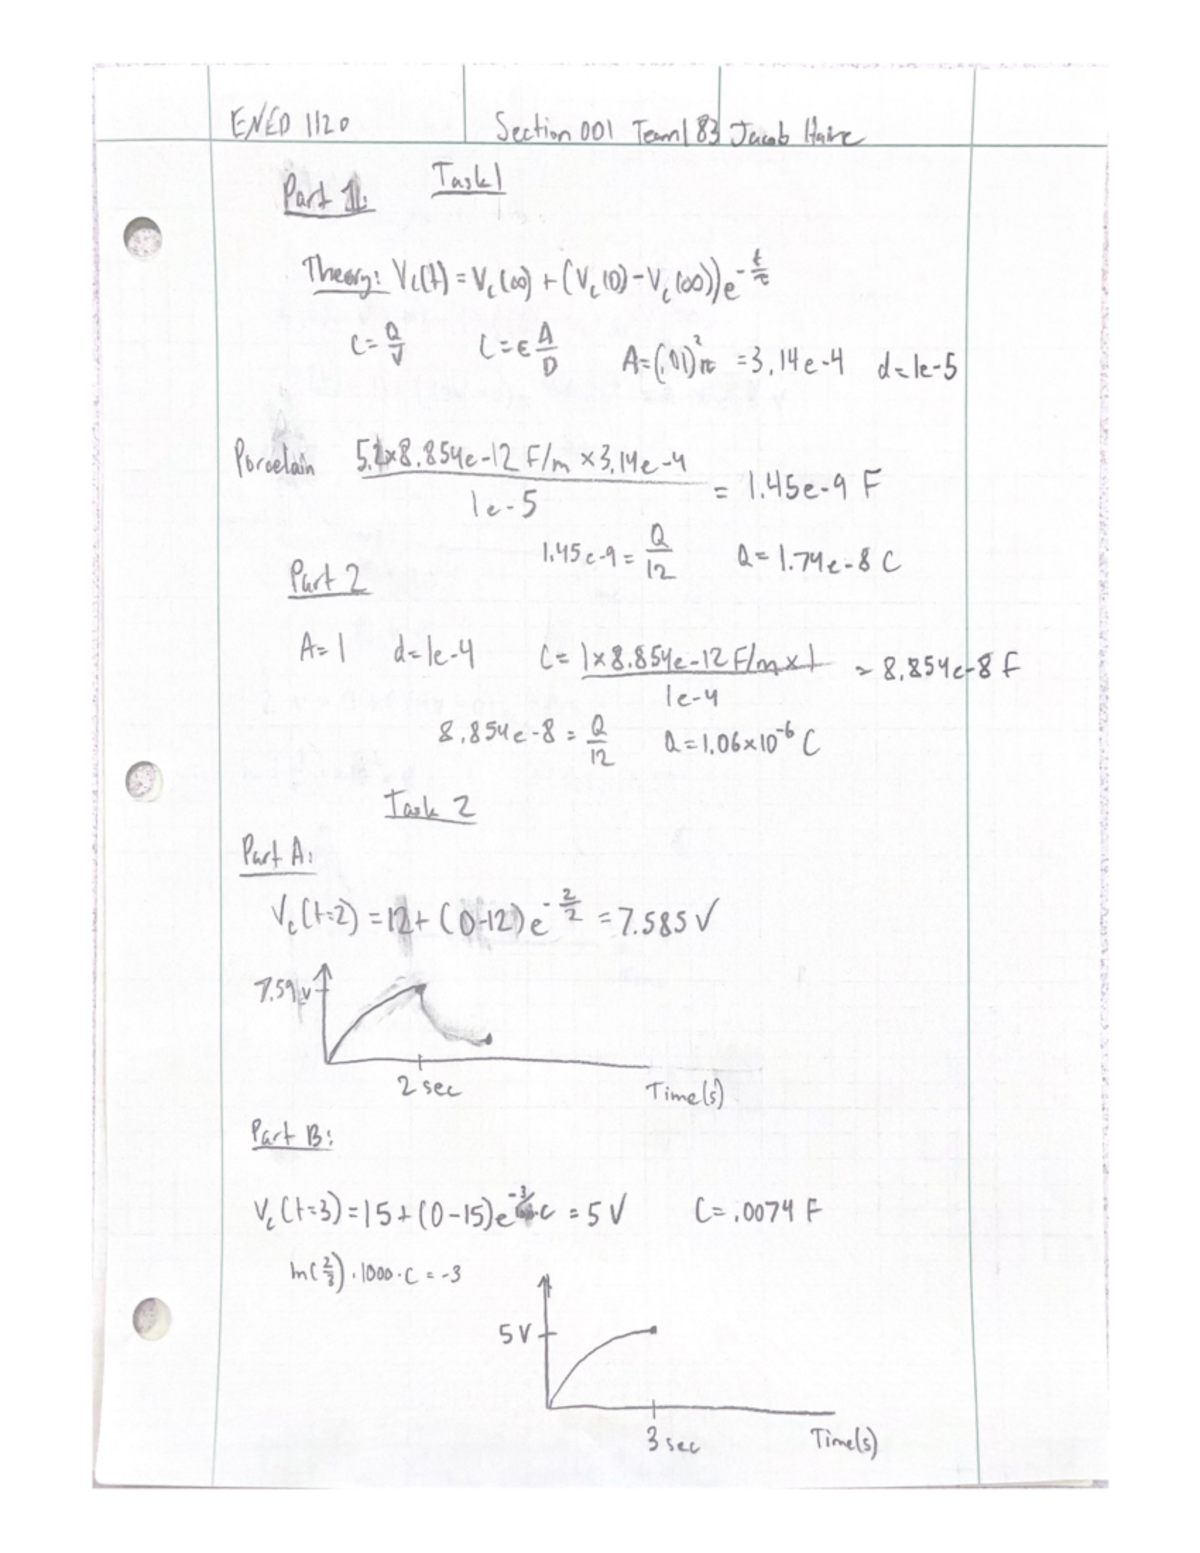 ENED 1120 Section 001 Team 183 Jacob Haire
Task 1
Part 1:
Theory: Vc(t) = Vc(∞) + (Vc(0) - Vc(∞))e^-t/τ
C = Q/V C = ε A/D A = (.01)²π = 3.14e-4 d = 1e-5
Porcelain 5.2×8.854e-12 F/m ×3.14e-4 / 1e-5 = 1.45e-9 F
1.45e-9 = Q/12 Q = 1.74e-8 C
Part 2
A = 1 d = 1e-4 C = 1×8.854e-12 F/m × 1 / 1e-4 = 8.854e-8 F
8.854e-8 = Q/12 Q = 1.06×10^-6 C
Task 2
Part A:
Vc(t=2) = 12 + (0-12)e^-2/2 = 7.585 V
7.59 v
2 sec
Time(s)
Part B:
Vc(t=3) = 15 + (0-15)e^-3/ C = 5 V C = .0074 F
ln(2/3) · 1000 · C = -3
5 V
3 sec Time(s)